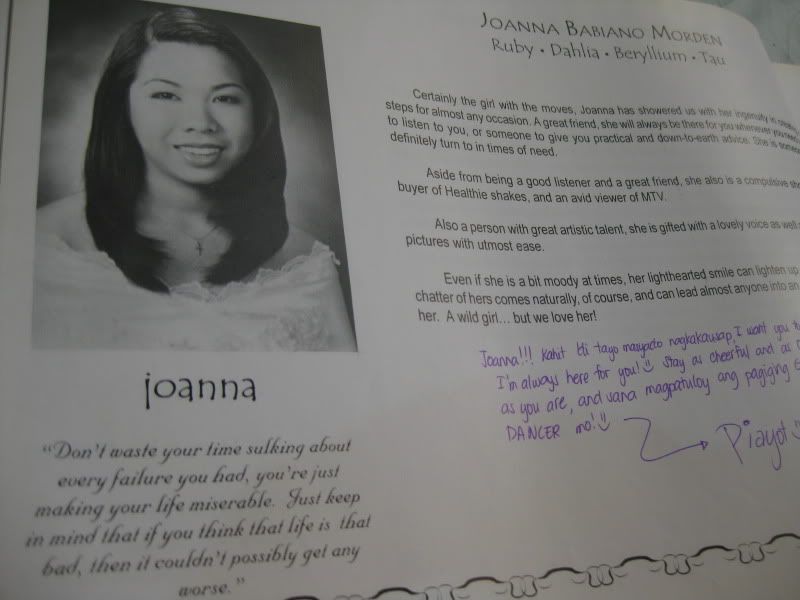 JOANNA BABIANO MORDEN
Ruby • Dahlia • Beryllium • Tau
Certainly the girl with the moves, Joanna has showered us with her ingenuity in
steps for almost any occasion. A great friend, she will always be there for you whenever you need
to listen to you, or someone to give you practical and down-to-earth advice. She is
definitely turn to in times of need.
Aside from being a good listener and a great friend, she also is a compulsive
buyer of Healthie shakes, and an avid viewer of MTV.
Also a person with great artistic talent, she is gifted with a lovely voice as well
pictures with utmost ease.
Even if she is a bit moody at times, her lighthearted smile can lighten up
chatter of hers comes naturally, of course, and can lead almost anyone into an
her. A wild girl... but we love her!
Joanna!!! Kahit di tayo masyado nagkakausap, I want you
I'm always here for you! Stay as cheerful and as
as you are, and sana magpatuloy ang pagiging
DANCER mo!
Piayot
joanna
"Don't waste your time sulking about
every failure you had, you're just
making your life miserable. Just keep
in mind that if you think that life is that
bad, then it couldn't possibly get any
worse."